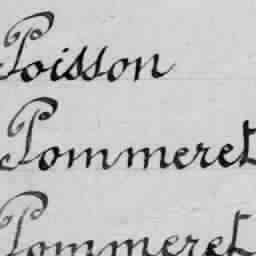 Poisson
Pommeret
Pommeret